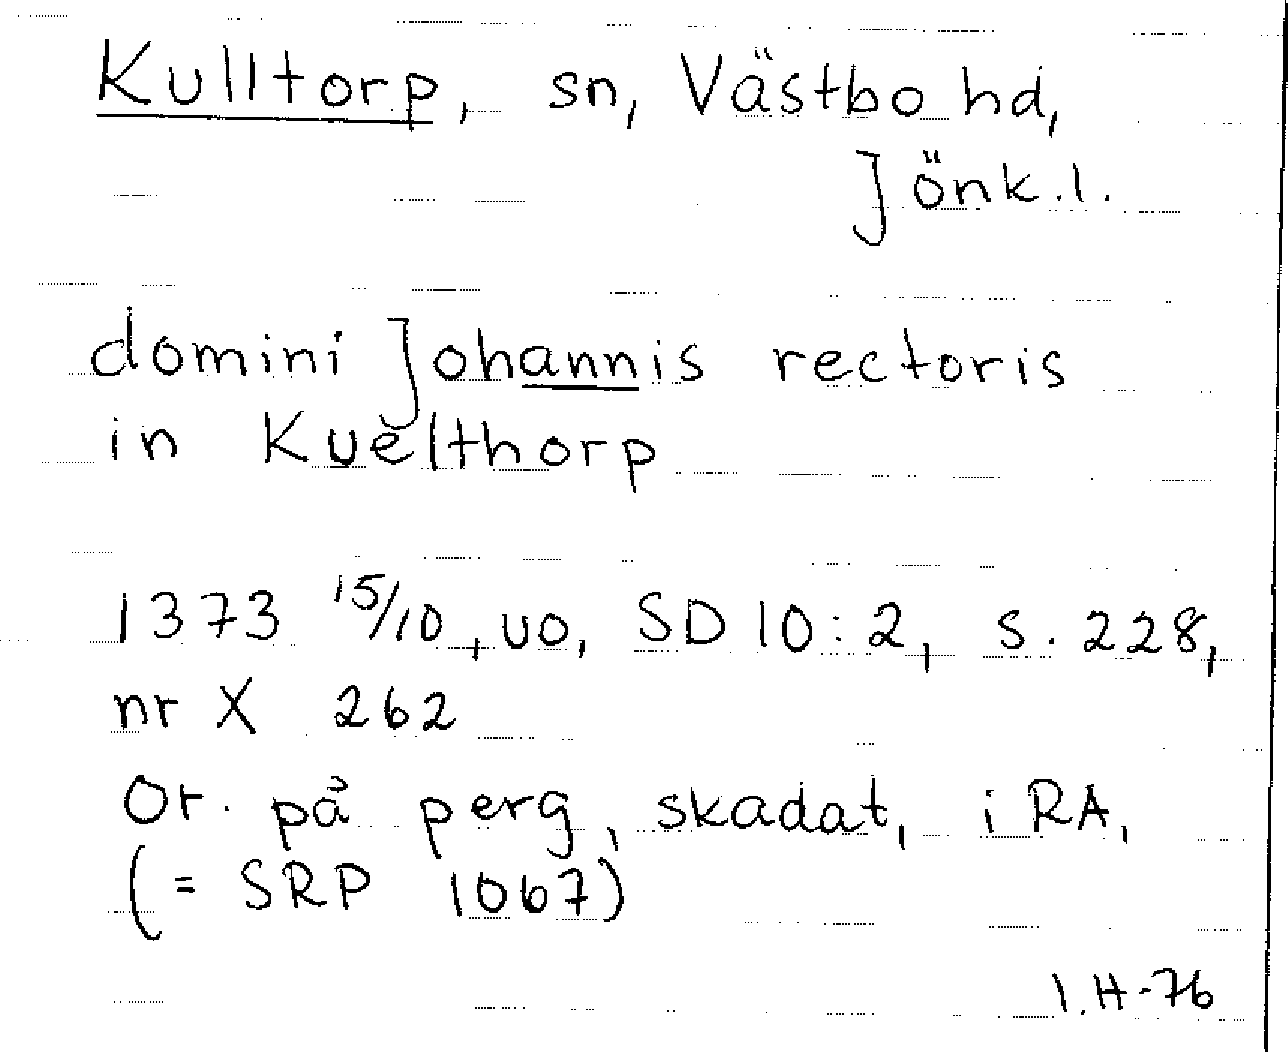 Kulltorp, sn, Västbo hd,
Jönk.l.
domini Johannis rectoris
in Kuelthorp
1373 15/10, uo, SD 10:2, s. 228,
nr X 262
Or. på perg, skadat, i RA,
(= SRP 1067)
I.H-76